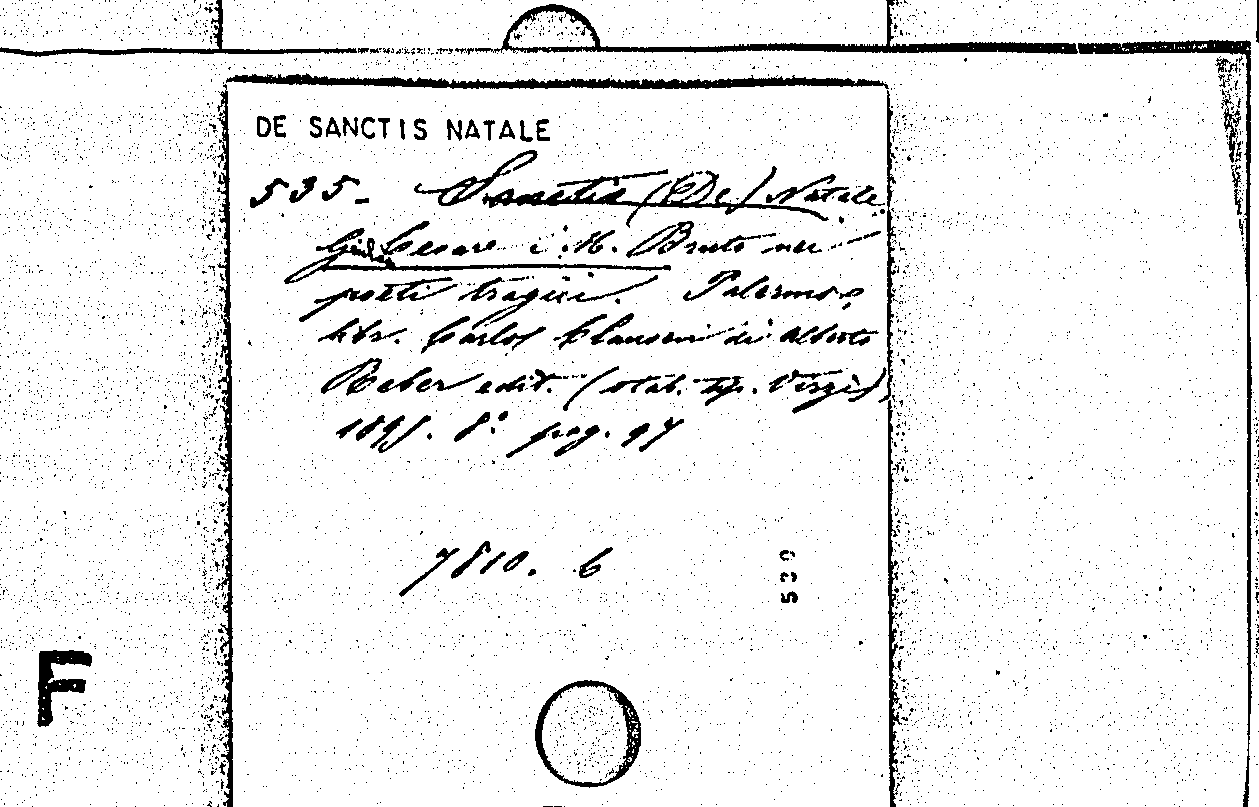 DE SANCTIS NATALE
535- Sanctis (De) Natale.
Giulio Cesare e M. Bruto nei
poeti tragici. Palermo,
libr. Carlos Clausen di Alberto
Reber edit. (stab. tip. Virzì),
1895. 8° pag. 97
7810. 6
539
F